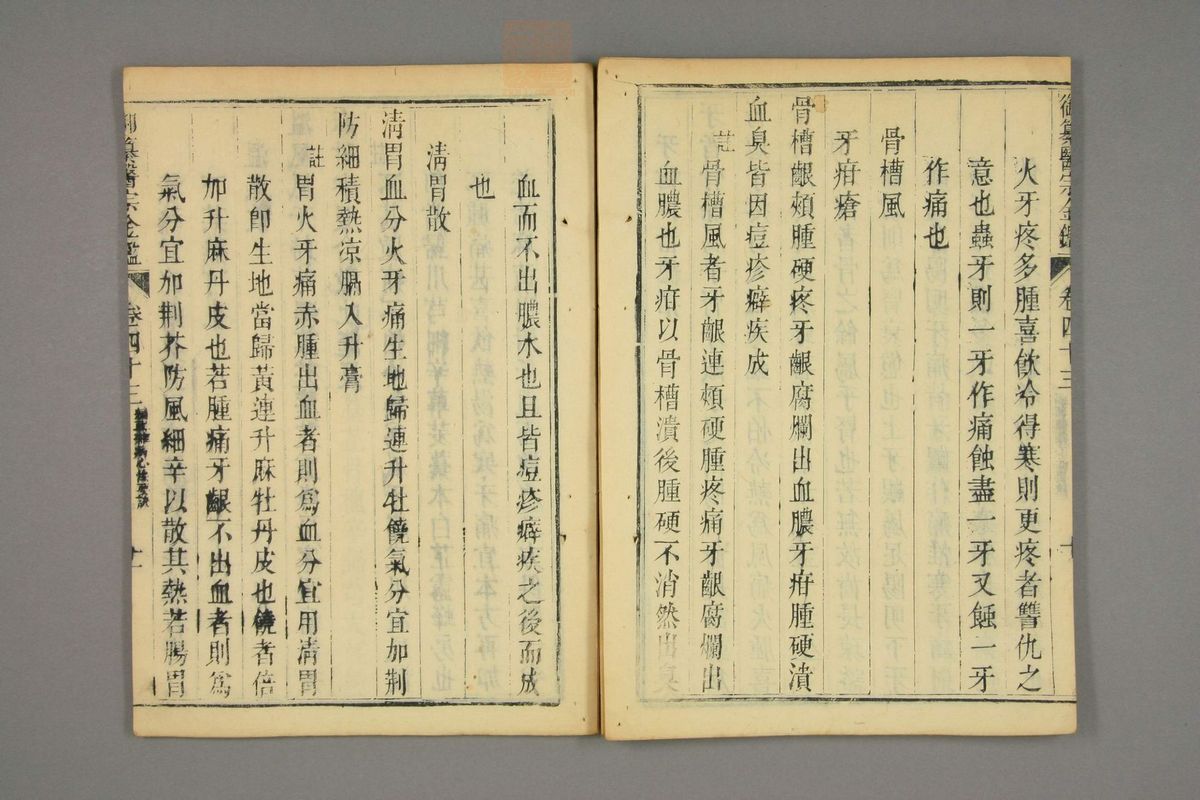 御纂醫宗金鑑 卷四十三 十
火牙疼多腫喜飲冷得寒則更疼者讐仇之
意也蟲牙則一牙作痛蝕盡一牙又蝕一牙
作痛也
骨槽風
牙疳瘡
骨槽齦頰腫硬疼牙齦腐爛出血膿牙疳腫硬潰
血臭皆因痘疹癖疾成
註骨槽風者牙齦連頰硬腫疼痛牙齦腐爛出
血膿也牙疳以骨槽潰後腫硬不消然出臭
血而不出膿水也且皆痘疹癖疾之後而成
也
淸胃散
淸胃血分火牙痛生地歸連升牡饒氣分宜加荆
防細積熱凉膈入升膏
註胃火牙痛赤腫出血者則爲血分宜用淸胃
散卽生地當歸黃連升麻牡丹皮也饒者倍
加升麻丹皮也若腫痛牙齦不出血者則爲
氣分宜加荆芥防風細辛以散其熱若腸胃
御纂醫宗金鑑 卷四十三 雜病心法要訣 十一